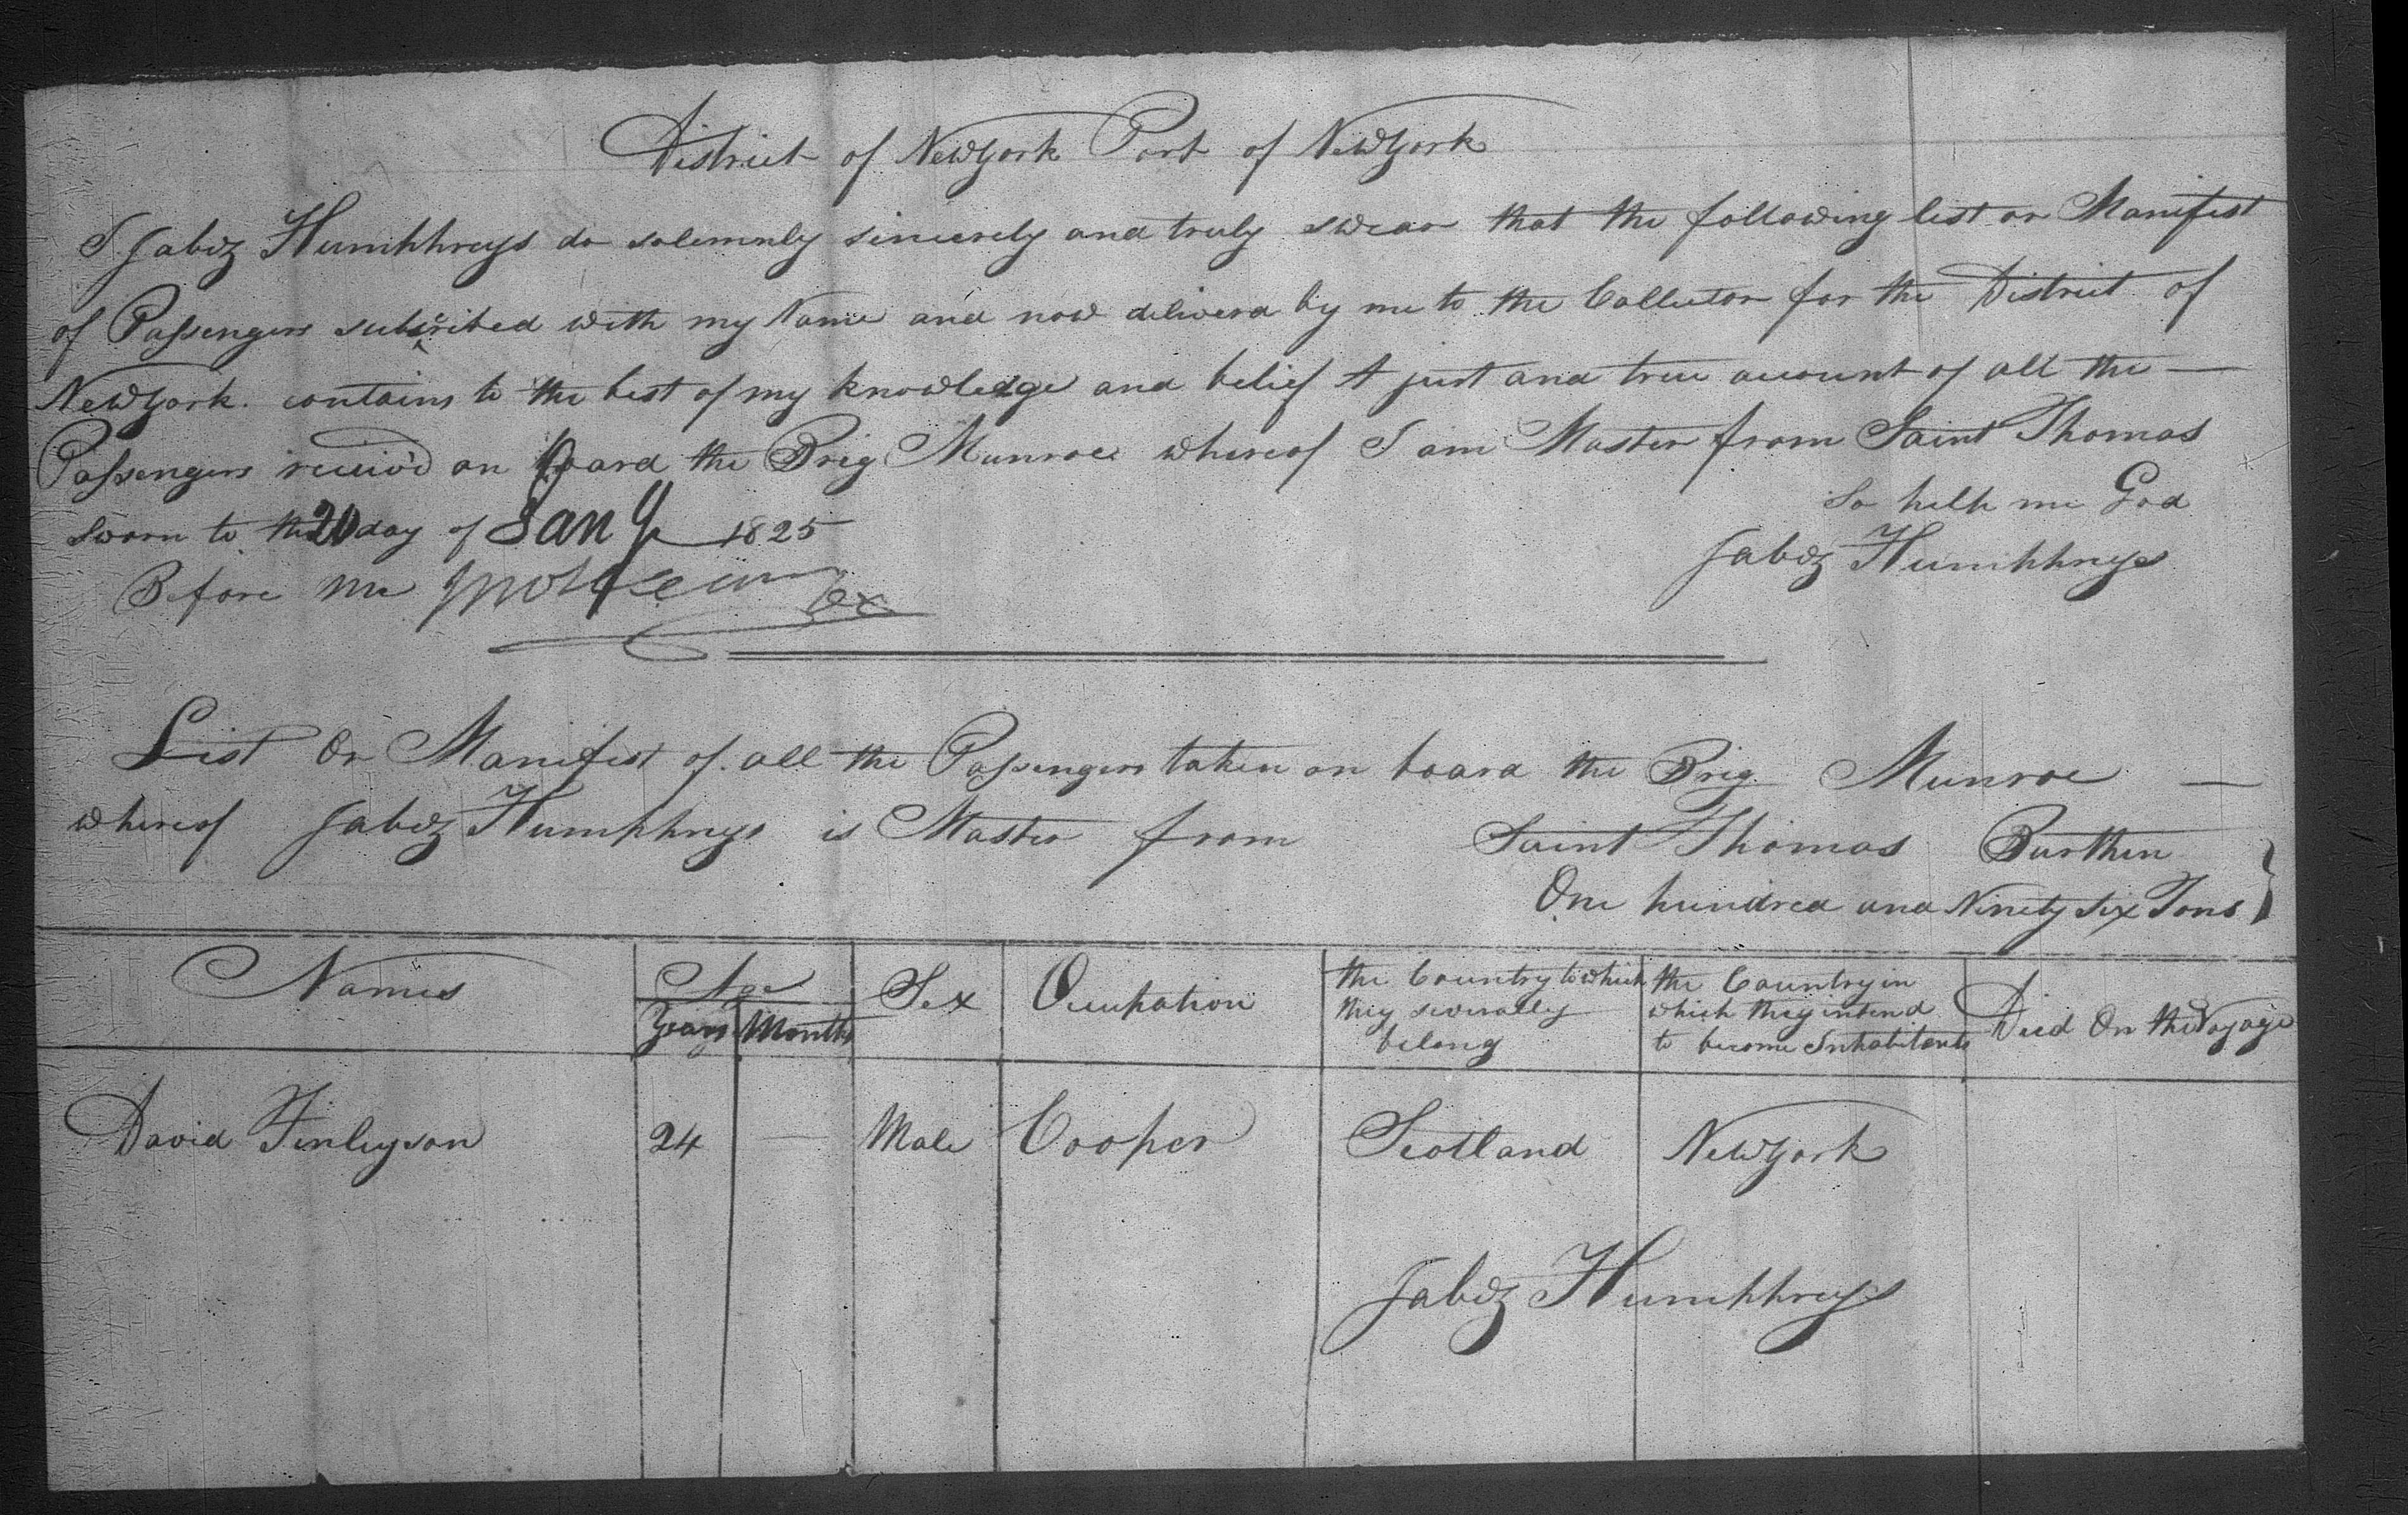 District of NewYork Port of NewYork
I Jabez Humphreys do solemnly sincerely and truly swear that the following list or Manifest
of Passengers subscribed with my Name and now deliverd by me to the Collector for the District of
NewYork. contains to the best of my knowledge and belief A just and true account of all the —
Passengers receiv'd on board the Brig Munroe whereof I am Master from Saint Thomas
So help me God
sworn to the 20 day of Jany 1825
Jabez Humphreys
Before me
List Or Manifest of all the Passengers taken on board the Brig Munroe —
whereof Jabez Humphreys is Master from Saint Thomas Burthen
One hundred and Ninety six Tons
Names Age Sex Occupation the Country to which the Country in Died On the Voyage
Years Months they severally which they intend
belong to become Inhabitants
David Finleyson 24 — Male Cooper Scotland NewYork
Jabez Humphreys